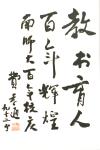 教书育人
百年辉煌
南师大百年校庆
费孝通
九十二岁